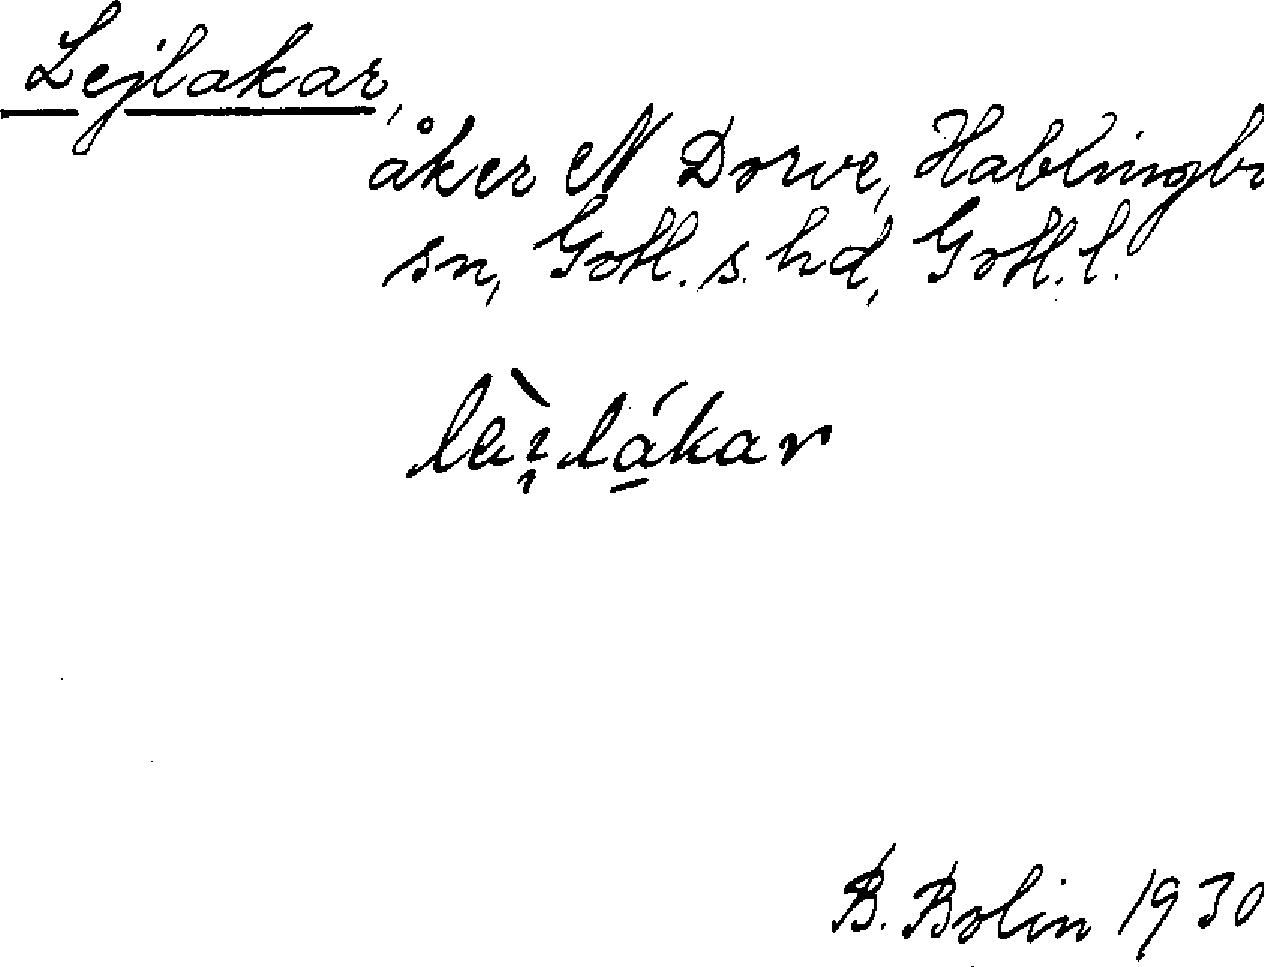 Lejlakar,
åker N Dorve, Hablingbo
sn, Gotl. s. hd, Gotl. l.
B. Bolin 1930